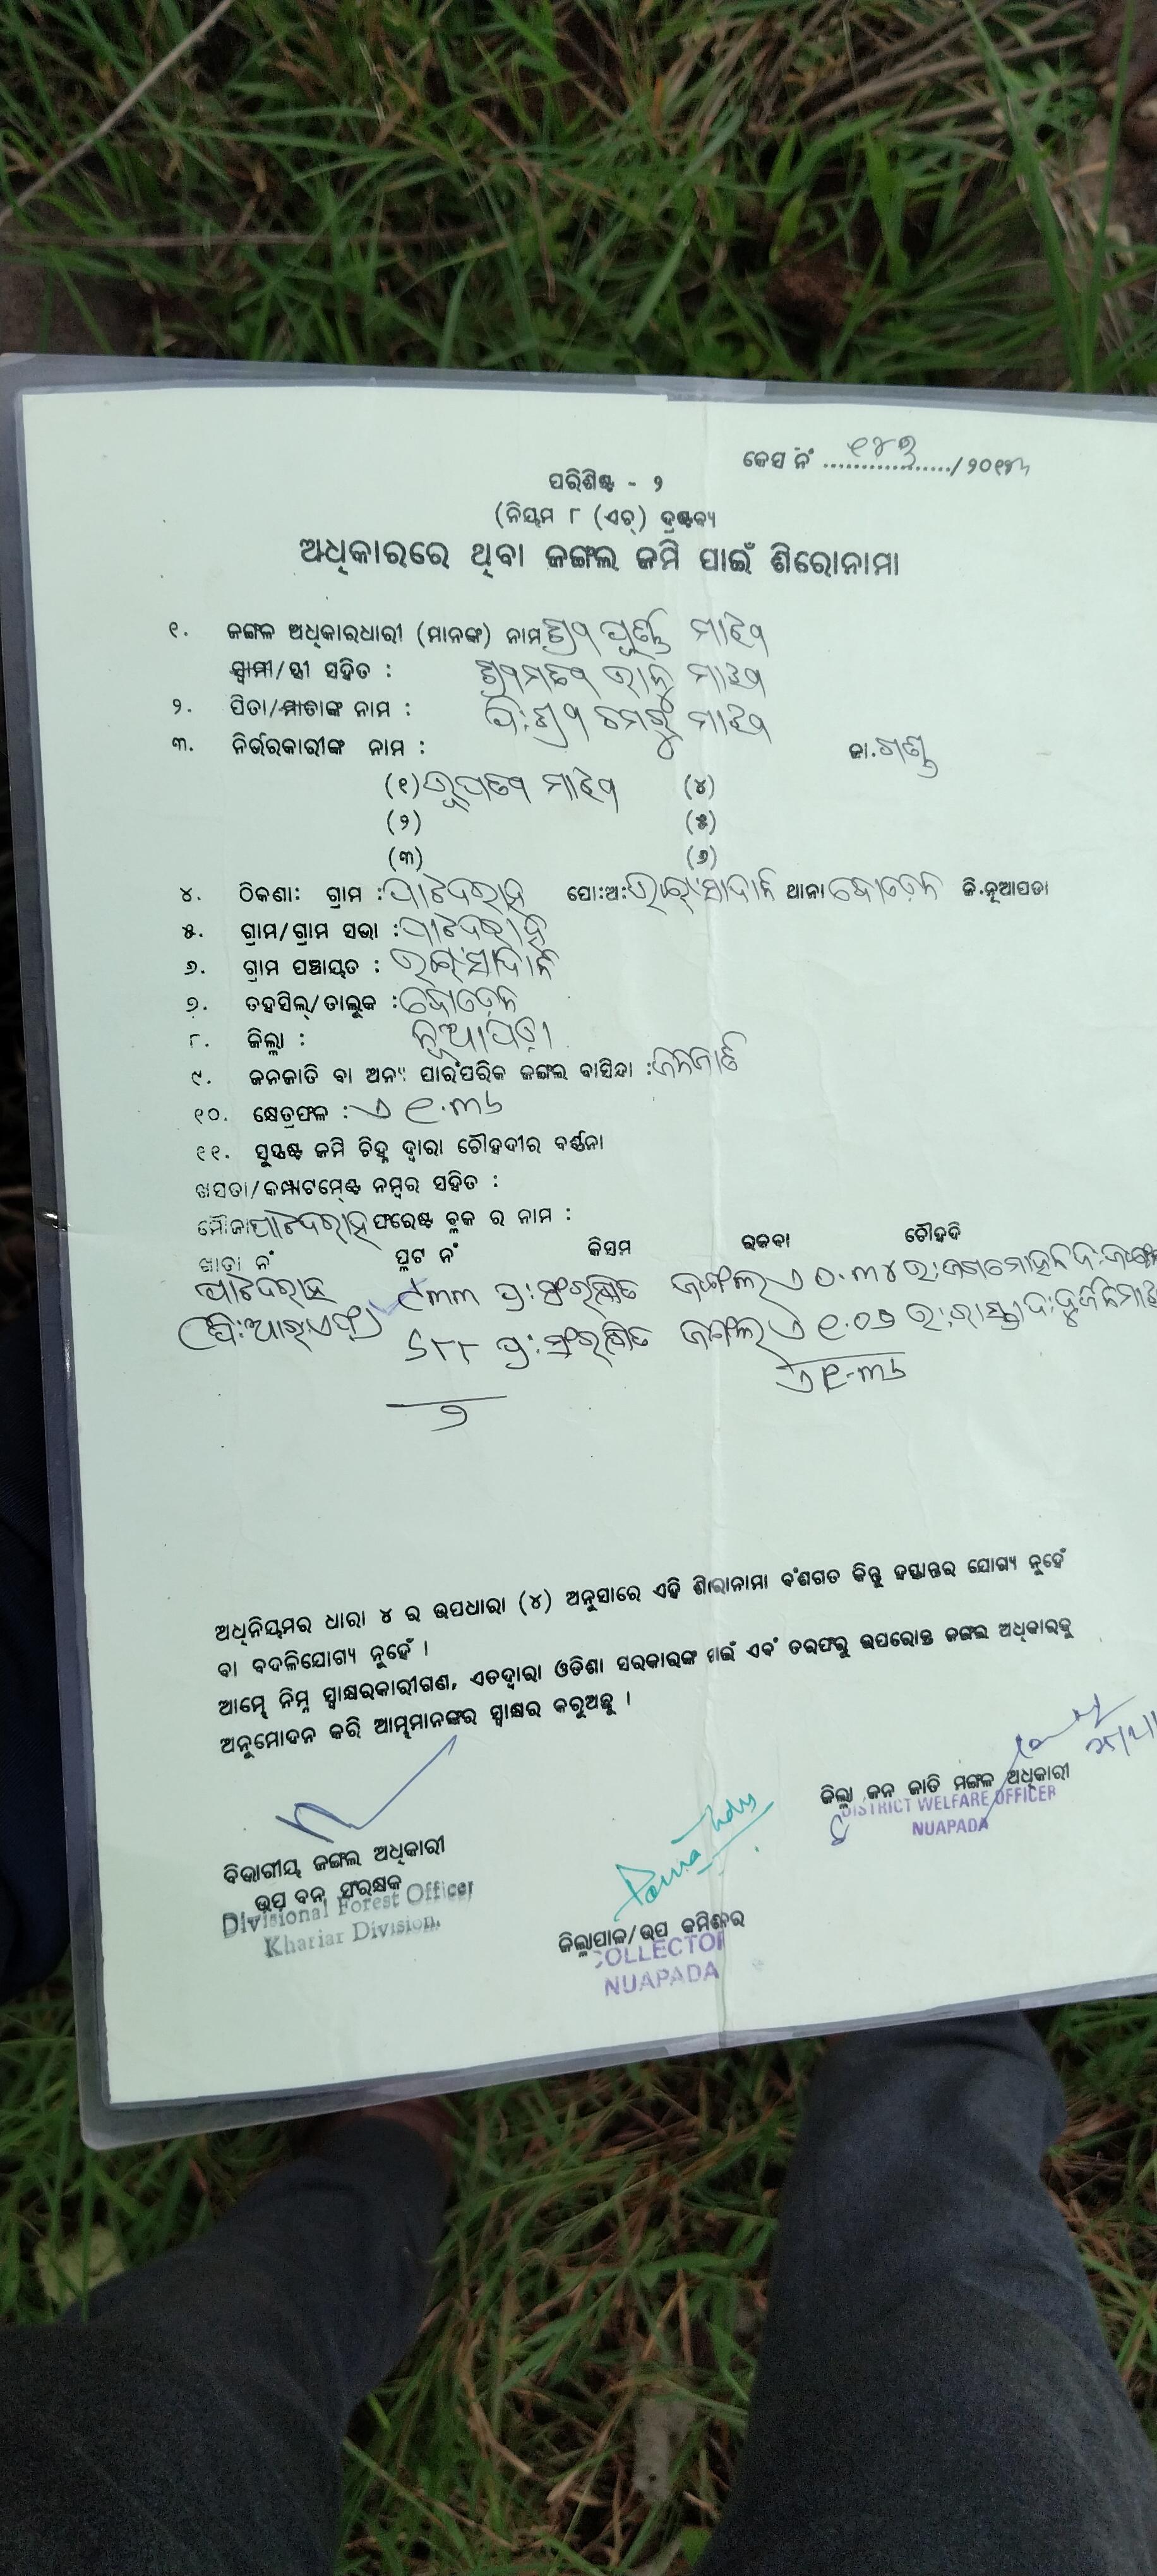 କେସ ନଂ ୧୪୩ /୨୦୧୩
ପରିଶିଷ୍ଟ - ୨
(ନିୟମ ୮ (ଏଚ୍) ଦ୍ରଷ୍ଟବ୍ୟ
ଅଧିକାରରେ ଥିବା ଜଙ୍ଗଲ ଜମି ପାଇଁ ଶିରୋନାମା
୧. ଜଙ୍ଗଳ ଅଧିକାରଧାରୀ (ମାନଙ୍କ) ନାମ ଶ୍ରୀ ପୂର୍ଣ୍ଣ ମାଝୀ
ସ୍ୱାମୀ/ସ୍ତ୍ରୀ ସହିତ : ଶ୍ରୀମତୀ ଭାନୁ ମାଝୀ
୨. ପିତା/ମାତାଙ୍କ ନାମ : ପି:ଶ୍ରୀ ଚମରୁ ମାଝୀ
୩. ନିର୍ଭରକାରୀଙ୍କ ନାମ : ଜା.ଗଣ୍ଡ
(୧) ରୂପତୀ ମାଝୀ (୪)
(୨) (୫)
(୩) (୬)
୪. ଠିକଣା: ଗ୍ରାମ : ପାଟଦରାହ ପୋ:ଅ: ଥାନା ଜି.ନୂଆପଡା
୫. ଗ୍ରାମ/ଗ୍ରାମ ସଭା : ପାଟଦରାହ
୬. ଗ୍ରାମ ପଞ୍ଚାୟତ :
୭. ତହସିଲ୍/ତାଲୁକ :
୮. ଜିଲ୍ଲା : ନୂଆପଡ଼ା
୯. ଜନଜାତି ବା ଅନ୍ୟ ପାରଂପରିକ ଜଙ୍ଗଲ ବାସିନ୍ଦା : ଜନଜାତି
୧୦. କ୍ଷେତ୍ରଫଳ : ଏ ୧.୩୬
୧୧. ସୁସ୍ପଷ୍ଟ ଜମି ଚିହ୍ନ ଦ୍ୱାରା ଚୌହଦୀର ବର୍ଣ୍ଣନା
ଖସଡା/କମ୍ପାଟମେଣ୍ଟ ନମ୍ବର ସହିତ :
ମୌଜା ପାଟଦରାହ ଫରେଷ୍ଟ ବ୍ଲକ ର ନାମ :
ଖାତା ନଂ ପ୍ଲଟ ନଂ କିସମ ରକବା ଚୌହଦି
ପାଟଦରାହ ୯୩୩ ପ୍ର:ସଂରକ୍ଷିତ ଜଙ୍ଗଲ ଏ ୦.୩୪ ଉ:ଜଗମୋହନ ଦ:ଜଙ୍ଗଲ
(ପି:ଆର୍:ଏଫ୍) ୬୮୮ ପ୍ର:ସଂରକ୍ଷିତ ଜଙ୍ଗଲ ଏ ୧.୦୨ ଉ:ରାସ୍ତା ଦ:ଦୁର୍ଜନ ମାଝୀ
୨ ଏ ୧.୩୬
ଅଧିନିୟମର ଧାରା ୪ ର ଉପଧାରା (୪) ଅନୁସାରେ ଏହି ଶିରୋନାମା ବଂଶଗତ କିନ୍ତୁ ହସ୍ତାନ୍ତର ଯୋଗ୍ୟ ନୁହେଁ
ବା ବଦଳିଯୋଗ୍ୟ ନୁହେଁ ।
ଆମ୍ଭେ ନିମ୍ନ ସ୍ୱାକ୍ଷରକାରୀଗଣ, ଏତଦ୍ୱାରା ଓଡିଶା ସରକାରଙ୍କ ପାଇଁ ଏବଂ ତରଫରୁ ଉପରୋକ୍ତ ଜଙ୍ଗଲ ଅଧିକାରକୁ
ଅନୁମୋଦନ କରି ଆମ୍ଭମାନଙ୍କର ସ୍ୱାକ୍ଷର କରୁଅଛୁ ।
ଜିଲ୍ଲା ଜନ ଜାତି ମଙ୍ଗଳ ଅଧିକାରୀ
DISTRICT WELFARE OFFICER
NUAPADA
ବିଭାଗୀୟ ଜଙ୍ଗଲ ଅଧିକାରୀ
ଉପ ବନ ସଂରକ୍ଷକ
Divisional Forest Officer
Khariar Division.
ଜିଲ୍ଲାପାଳ/ଉପ କମିଶନର
COLLECTOR
NUAPADA